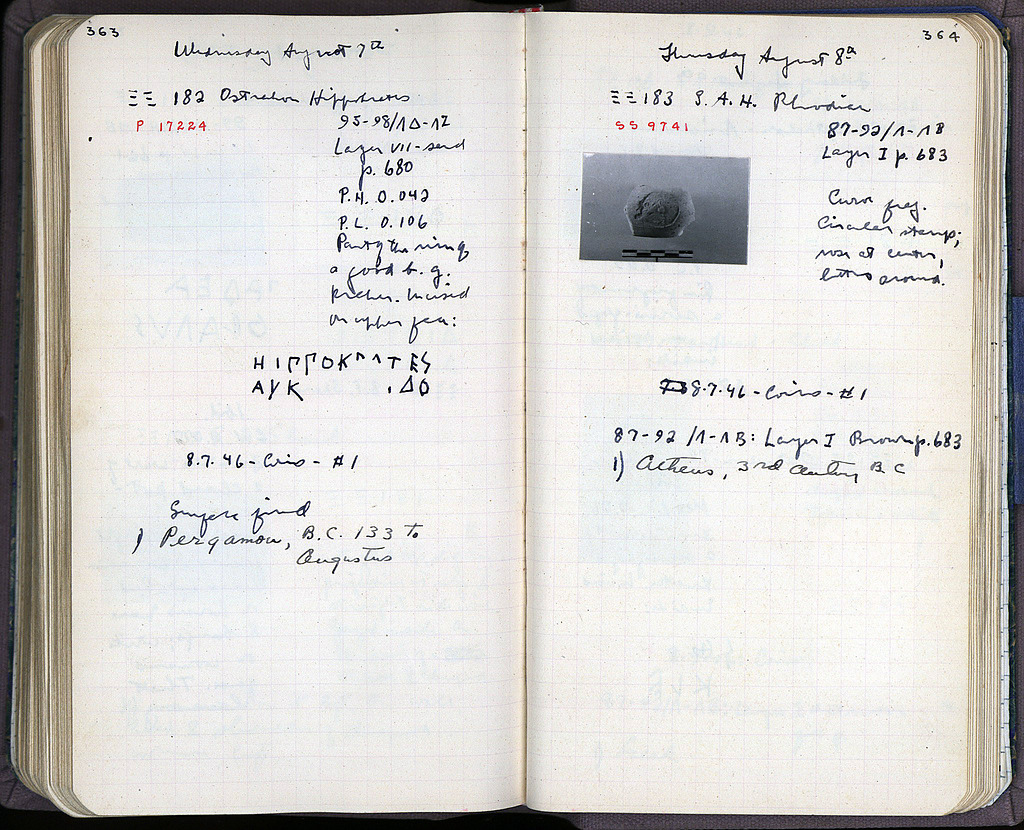 363
Wednesday August 7th
ΞΞ 182 Ostrakon Hippokrates
P 17224
95-98/ΛΔ-ΛΖ
Layer VII - sand
p. 680
P.H. 0.042
P.L. 0.106
Part of the ring of
a good b. g.
krater. Incised
on upper face:
ΗΙΓΓΟΚ ΤΕS
ΑΥΚ ΔΟ
8.7.46 - Coins - #1
Surface find
1) Pergamon, B.C. 133 to
Augustus
364
Thursday August 8th
ΞΞ 183 S.A.H. Rhodian
SS 9741
87-92/Λ-ΛΒ
Layer I p. 683
Curved frag.
Circular stamp;
rose at center,
letters around.
8.7.46 - Coins - #1
87-92/Λ-ΛΒ: Layer I Brown p. 683
1) Athens, 3rd century B C